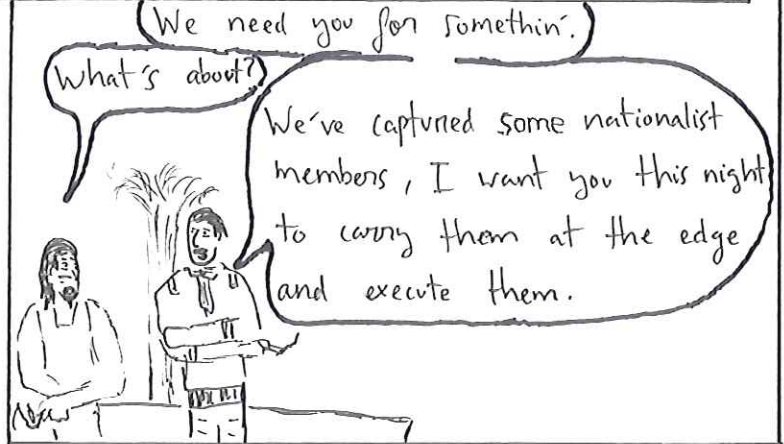 We need you for somethin'.
What's about?
We've captured some nationalist
members, I want you this night
to carry them at the edge
and execute them.